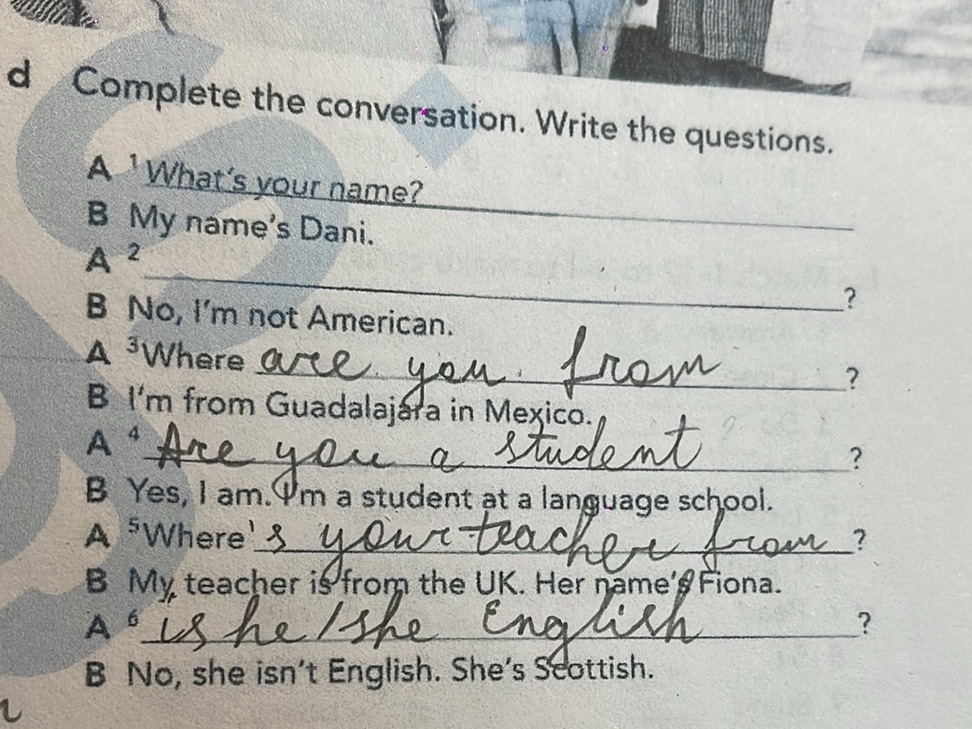 d Complete the conversation. Write the questions.
A 1 What's your name?
B My name's Dani.
A 2 ?
B No, I'm not American.
A 3 Where are you from ?
B I'm from Guadalajara in Mexico.
A 4 Are you a student ?
B Yes, I am. I'm a student at a language school.
A 5 Where's your teacher from ?
B My teacher is from the UK. Her name's Fiona.
A 6 is he/she English ?
B No, she isn't English. She's Scottish.